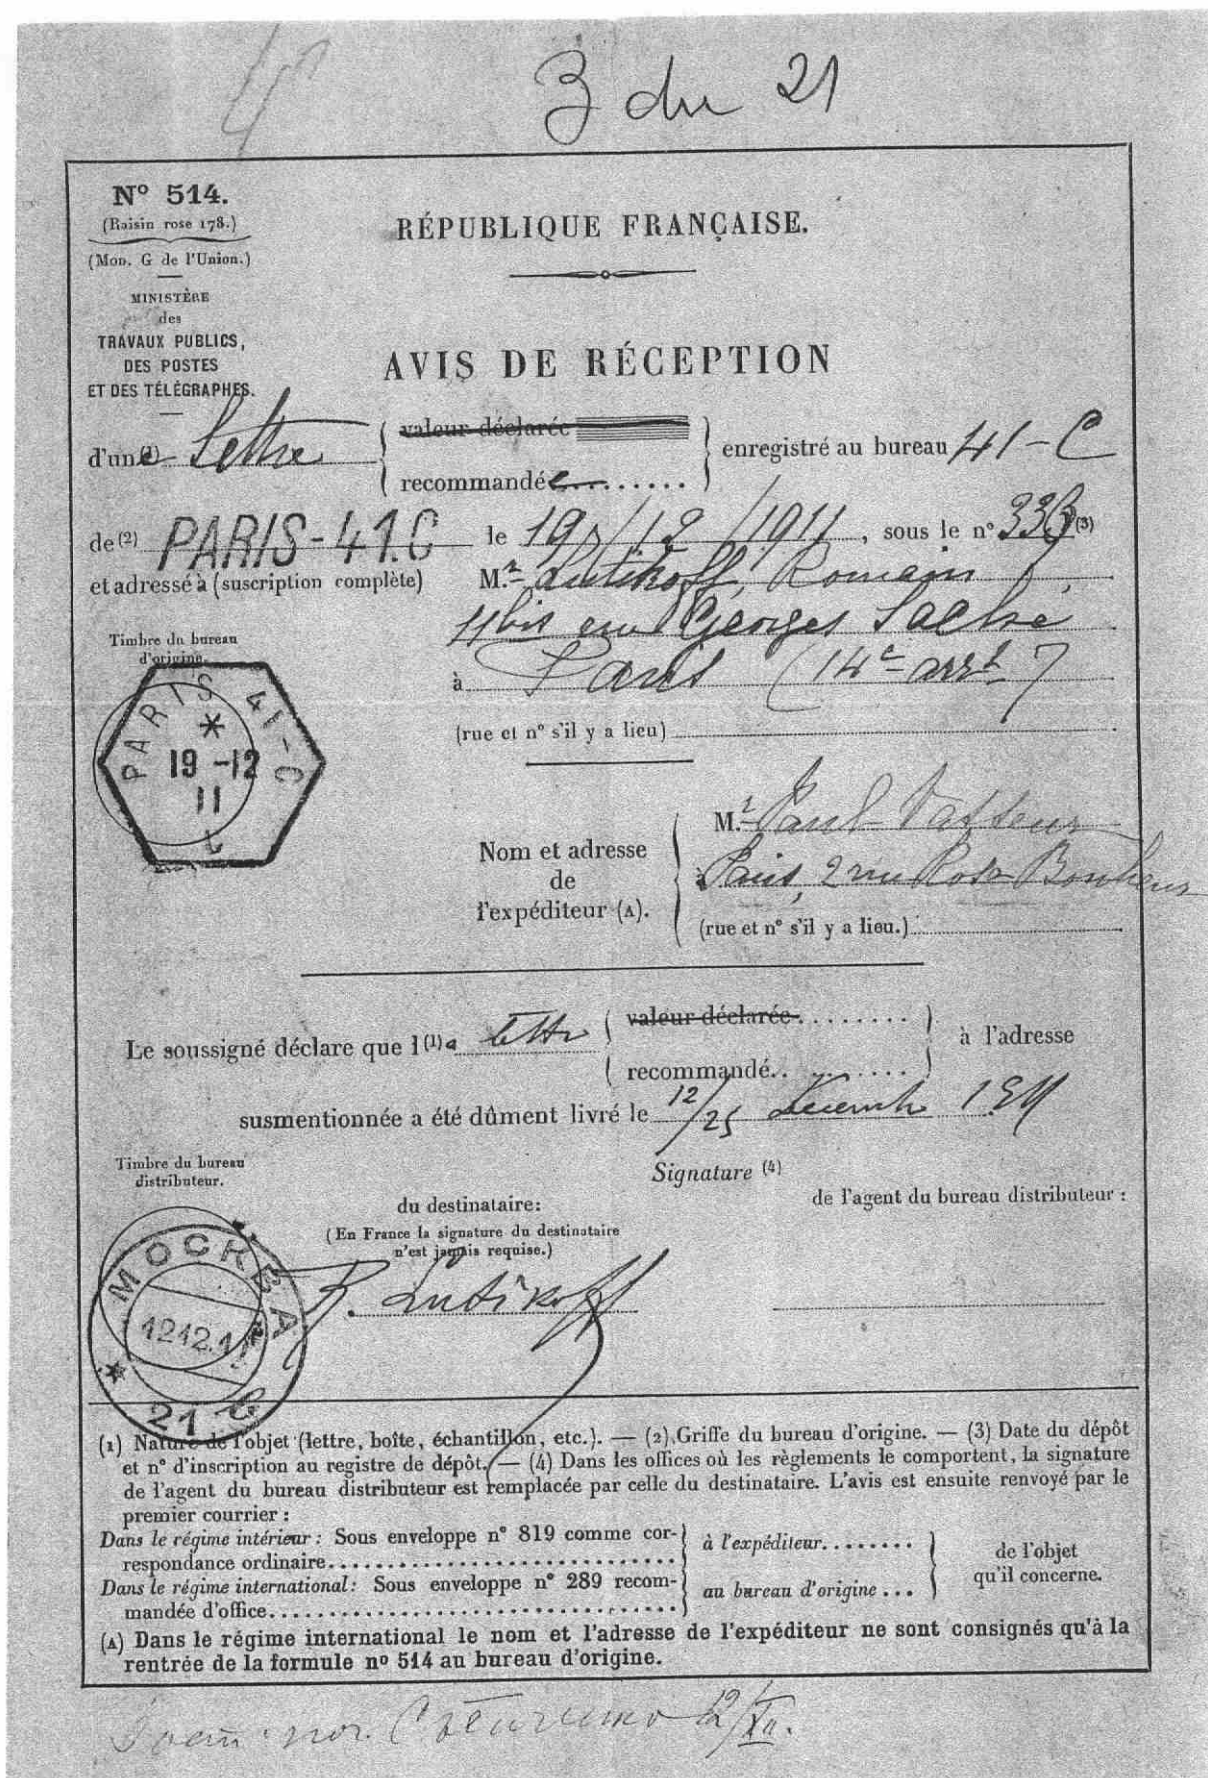 3 du 21
N° 514.
(Raisin rose 178.)
(Mon. G de l'Union.)
MINISTÈRE
des
TRAVAUX PUBLICS,
DES POSTES
ET DES TÉLÉGRAPHES.
RÉPUBLIQUE FRANÇAISE.
AVIS DE RÉCEPTION
d'une (1) Lettre
valeur déclarée
recommandée
enregistré au bureau 41-C
de (2) PARIS-41.C le 19/12/1911, sous le n° 336 (3)
et adressé à (suscription complète) M.r Lutikoff, Romain
4 bis rue Georges Saché
à Paris (14e arrt)
(rue et n° s'il y a lieu)
Timbre du bureau
d'origine.
PARIS 41-C
*
19-12
11
Nom et adresse
de
l'expéditeur (A).
M.r Paul
Paris, 2 rue Rosa Bonheur
(rue et n° s'il y a lieu.)
Le soussigné déclare que l (1) a lettre
valeur déclarée
recommandé
à l'adresse
susmentionnée a été dûment livré le 12/25 decembre 1911
Timbre du bureau
distributeur.
Signature (4)
du destinataire:
(En France la signature du destinataire
n'est jamais requise.)
de l'agent du bureau distributeur :
R. Lutikoff
МОСКВА
12.12.11
21
(1) Nature de l'objet (lettre, boîte, échantillon, etc.). — (2) Griffe du bureau d'origine. — (3) Date du dépôt
et n° d'inscription au registre de dépôt. — (4) Dans les offices où les règlements le comportent, la signature
de l'agent du bureau distributeur est remplacée par celle du destinataire. L'avis est ensuite renvoyé par le
premier courrier :
Dans le régime intérieur : Sous enveloppe n° 819 comme cor-
respondance ordinaire
à l'expéditeur
Dans le régime international : Sous enveloppe n° 289 recom-
mandée d'office
au bureau d'origine ...
de l'objet
qu'il concerne.
(A) Dans le régime international le nom et l'adresse de l'expéditeur ne sont consignés qu'à la
rentrée de la formule n° 514 au bureau d'origine.
12/XII.